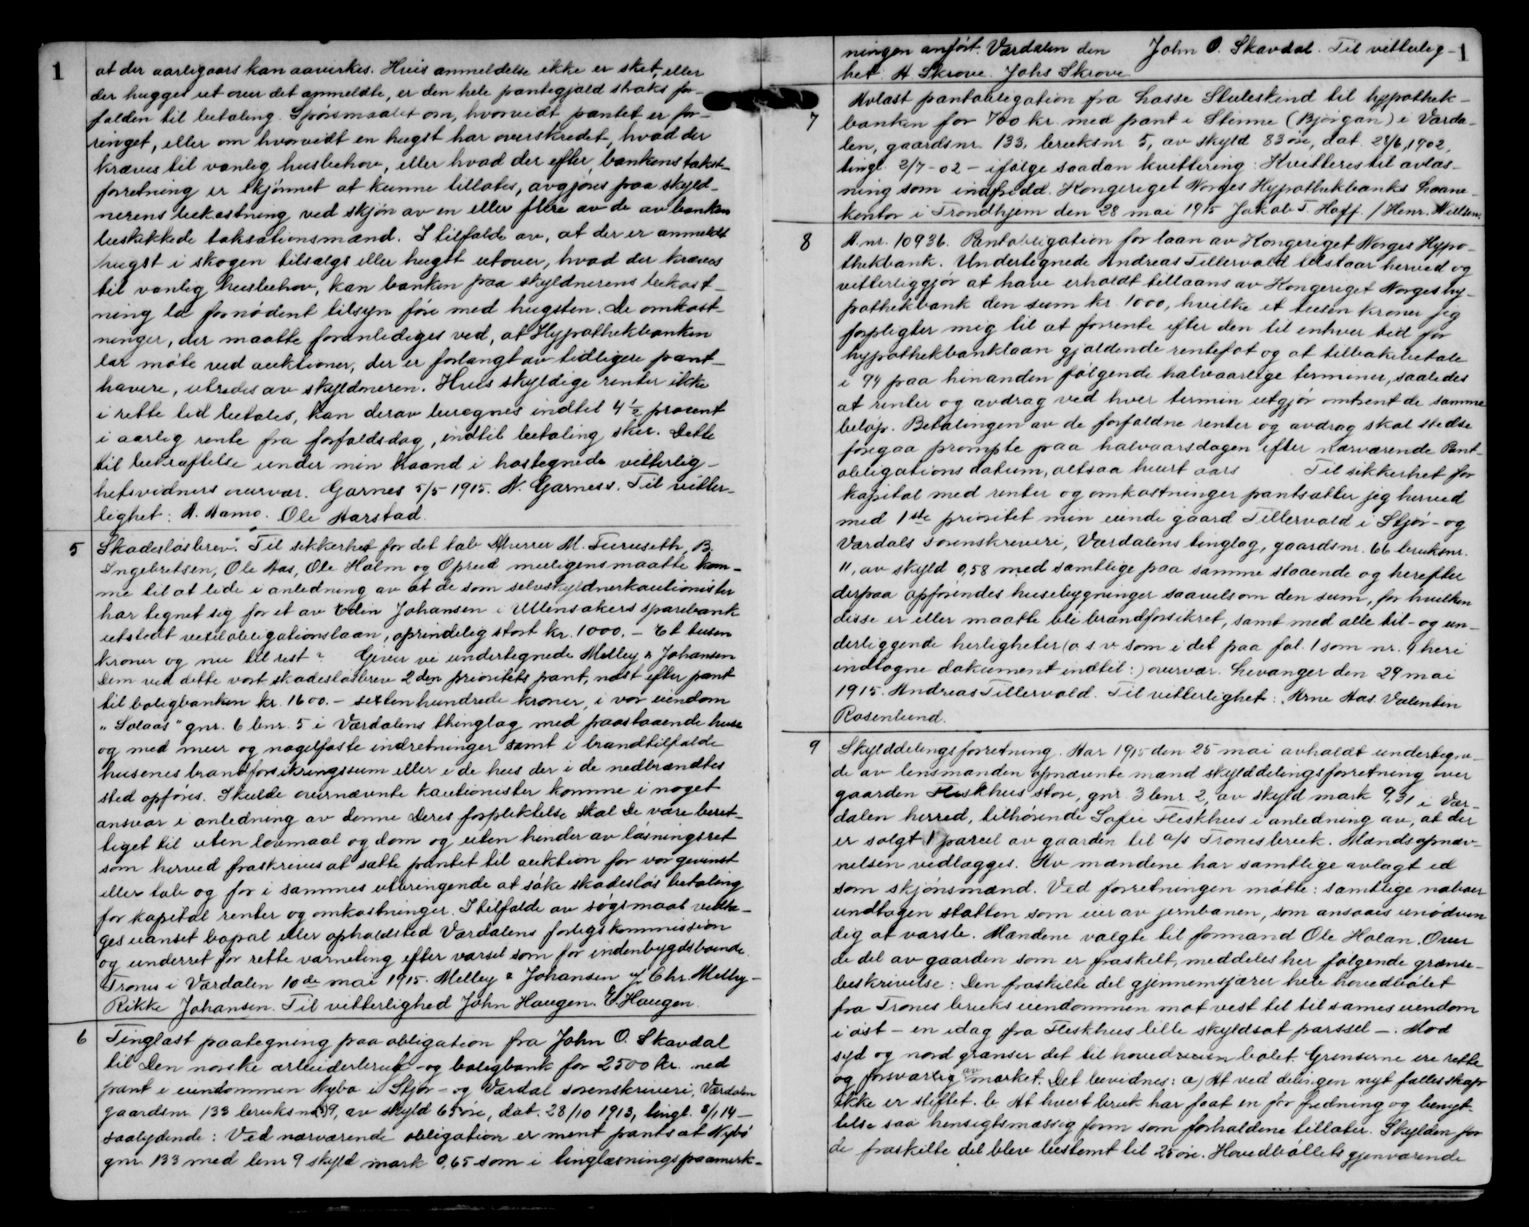 1
at der aarligaars kan aavirkes. Hvis anmeldelse ikke er sket, eller
der hugges ut over det anmeldte, er den hele pantegjæld straks for-
falden til betaling. Spørsmaalet om, hvorvidt pantet er for-
ringet, eller om hvorvidt en hugst har overskredet, hvad der
kræves til vanlig husbehov, eller hvad der efter bankens takst-
forretning er skjønnet at kunne tillates, avgjøres paa skyld-
nerens bekostning ved skjøn av en eller flere av de av banken
beskikkede taksationsmænd. I tilfælde av, at der er anmeldt
hugst i skogen tilsalgs eller hugst utover, hvad der kræves
til vanlig husbehov, kan banken paa skyldnerens bekost-
ning la fornødent tilsyn føre med hugsten. De omkost-
ninger, der maatte foranlediges ved, at Hypothekbanken
lar møte ved auktioner, der er forlangt av tidligere pant-
havere, utredes av skyldneren. Hvis skyldige renter ikke
i rette tid betales, kan derav beregnes indtil 4 1/2 procent
i aarlig rente fra forfaldsdag, indtil betaling sker. Dette
til bekræftelse under min haand i hostegnede vitterlig-
hetsvidners overvær. Garnes 5/5 1915. N. Garness. Til vitter-
lighet: A. Hamo. Ole Aarstad.
5 Skadesløsbrev. Til sikkerhet for det tab Dherrer M. Furuseth, B.
Ingebretsen, Ole Aas, Ole Holm og Oprud muligensmaatte kom-
me til at lide i anledning av at de som selvskyldnerkautionister
har tegnet sig for et av Edin Johansen i Ullensakers sparebank
utstedt vexelobligationslaan, oprindelig stort kr. 1000.- Et tusen
kroner og nu til rest " Giver vi undertegnede Melby & Johansen
Dem ved dette vort skadesløsbrev 2den prioritets pant, næst efter pant
til boligbanken kr. 1600.- sextenhundrede kroner, i vor eiendom
"Solaas" gnr. 6 bnr. 5 i Værdalens thinglag med paastaaende huse
og med mur og nagelfaste indretninger samt i brandtilfælde
husenes brandforsikringssum eller i de hus der i de nedbrændtes
sted opføres. Skulde overnævnte kautionister komme i noget
ansvar i anledning av denne Deres forpliktelse skal De være beret-
tiget til uten lovmaal og dom og uten hinder av løsningsret
som herved fraskrives at sætte pantet til auktion for vor gevinst
eller tab og for i sammes utbringende at søke skadesløs betaling
for kapital renter og omkostninger. I tilfælde av søgsmaal vedta-
ges uanset bopæl eller opholdsted Værdalens forligskommission
og underret for rette værneting efter varsel som for indenbygdsboende.
Trones i Værdalen 10de mai 1915. Melby & Johansen v/ Chr. Melby-
Rikke Johansen. Til vitterlighed John Haugen. E. Haugen.
6 Tinglæst paategning paa obligation fra John O. Skavdal
til Den norske arbeiderbruk- og boligbank for 2500 kr. med
pant i eiendommen Nybo i Stjør- og Værdal sorenskriveri, Værdalen
gaardsnr. 133 bruksnr. 9, av skyld 65 øre, dat. 28/10 1913, tingl. 2/1 14-
saalydende: Ved nærværende obligation er ment pantsat Nybo
gnr. 133 med bnr 9 skyld mark 0,65 som i tinglæsningspaamerk-
1
ningen anført. Værdalen den John O. Skavdal. Til vitterlig-
het A Skrove. Johs Skrove
7 Avlæst pantobligation fra Lasse Stuleskind til hypothek-
banken for 700 kr. med pant i Stenne (Bjørgan) i Værda-
len, gaardsnr. 133, bruksnr 5, av skyld 83 øre, dat. 28/6 1902,
tingl. 2/7-02- ifølge saadan kvittering: Kvitteres til avlæs-
ning som indfridd. Kongeriget Norges Hypothekbanks Laane-
kontor i Trondhjem den 28 mai 1915 Jakob T. Hoff. / Henr. Nillsen.
8 A. nr. 10936. Pantobligation for laan av Kongeriget Norges Hypo-
thekbank. Undertegnede Andreas Tillervold tilstaar herved og
vitterliggjør at have erholdt tillaans av Kongeriget Norges hy-
pothekbank den sum kr. 1000, hvilke et tusen kroner jeg
forpligter mig til at forrente efter den til enhver tid for
hypothekbanklaan gjældende rentefot og at tilbakebetale
i 74 paa hinanden følgende halvaarlige terminer, saaledes
at renter og avdrag ved hver termin utgjør omtrent de samme
beløp. Betalingen av de forfaldne renter og avdrag skal stedse
foregaa prompte paa halvaarsdagen efter nærværende Pant-
obligations datum, altsaa hvert aars Til sikkerhet for
kapital med renter og omkostninger pantsætter jeg herved
med 1ste prioritet min eiende gaard Tillervold i Stjør- og
Værdals sorenskriveri, Værdalens tinglag, gaardsnr. 66 bruksnr.
11, av skyld 0,58 med samtlige paa samme staaende og herefter
derpaa opførendes husebygninger saavelsom den sum, for hvilken
disse er eller maatte bli brandforsikret, samt med alle til- og un-
derliggende herligheter (o s v som i det paa fol. 1 som nr. 4 heri
indtagne dokument indtil:) overvær. Levanger den 29 mai
1915. Andreas Tillervold. Til vitterlighet: Arne Aas. Valentin
Rosenlund.
9 Skylddelingsforretning. Aar 1915 den 25 mai avholdt undertegne-
de av lensmanden opnævnte mænd skylddelingsforretning over
gaarden Fleskhus store, gnr. 3 bnr. 2, av skyld mark 9,31 i Vær-
dalen herred, tilhørende Sofie Fleskhus i anledning av, at der
er solgt 1 parcel av gaarden til a/s Trones bruk. Mandsopnæv-
nelsen vedlægges. Av mændene har samtlige avlagt ed
som skjønsmænd. Ved forretningen møtte: samtlige naboer
undtagen statten som eier av jernbanen, som ansaaes unødven
dig at varsle. Mændene valgte til formand Ole Holan. Over
de del av gaarden som er fraskelt, meddeles her følgende grænse-
beskrivelse: Den fraskilte del gjennemsjærer hele hovedbølet
fra Trones bruks eiendommen mot vest til til sames eiendom
i øst - en idag fra Fleskhus lille skyldsat parssel -. Mod
syd og nord grænser det til hovedbølet. Grenserne ere rette
og forsvarlig av mærket. Det bevidnes: a) At ved delingen nyt fællesskap
ikke er stiftet. b. At hvert bruk har faat en for fredning og benyt-
telse saa hensigtsmæssig form som forholdene tillater. Skylden for
de fraskilte del blev bestemt til 25 øre. Hovedbøllets gjenværende